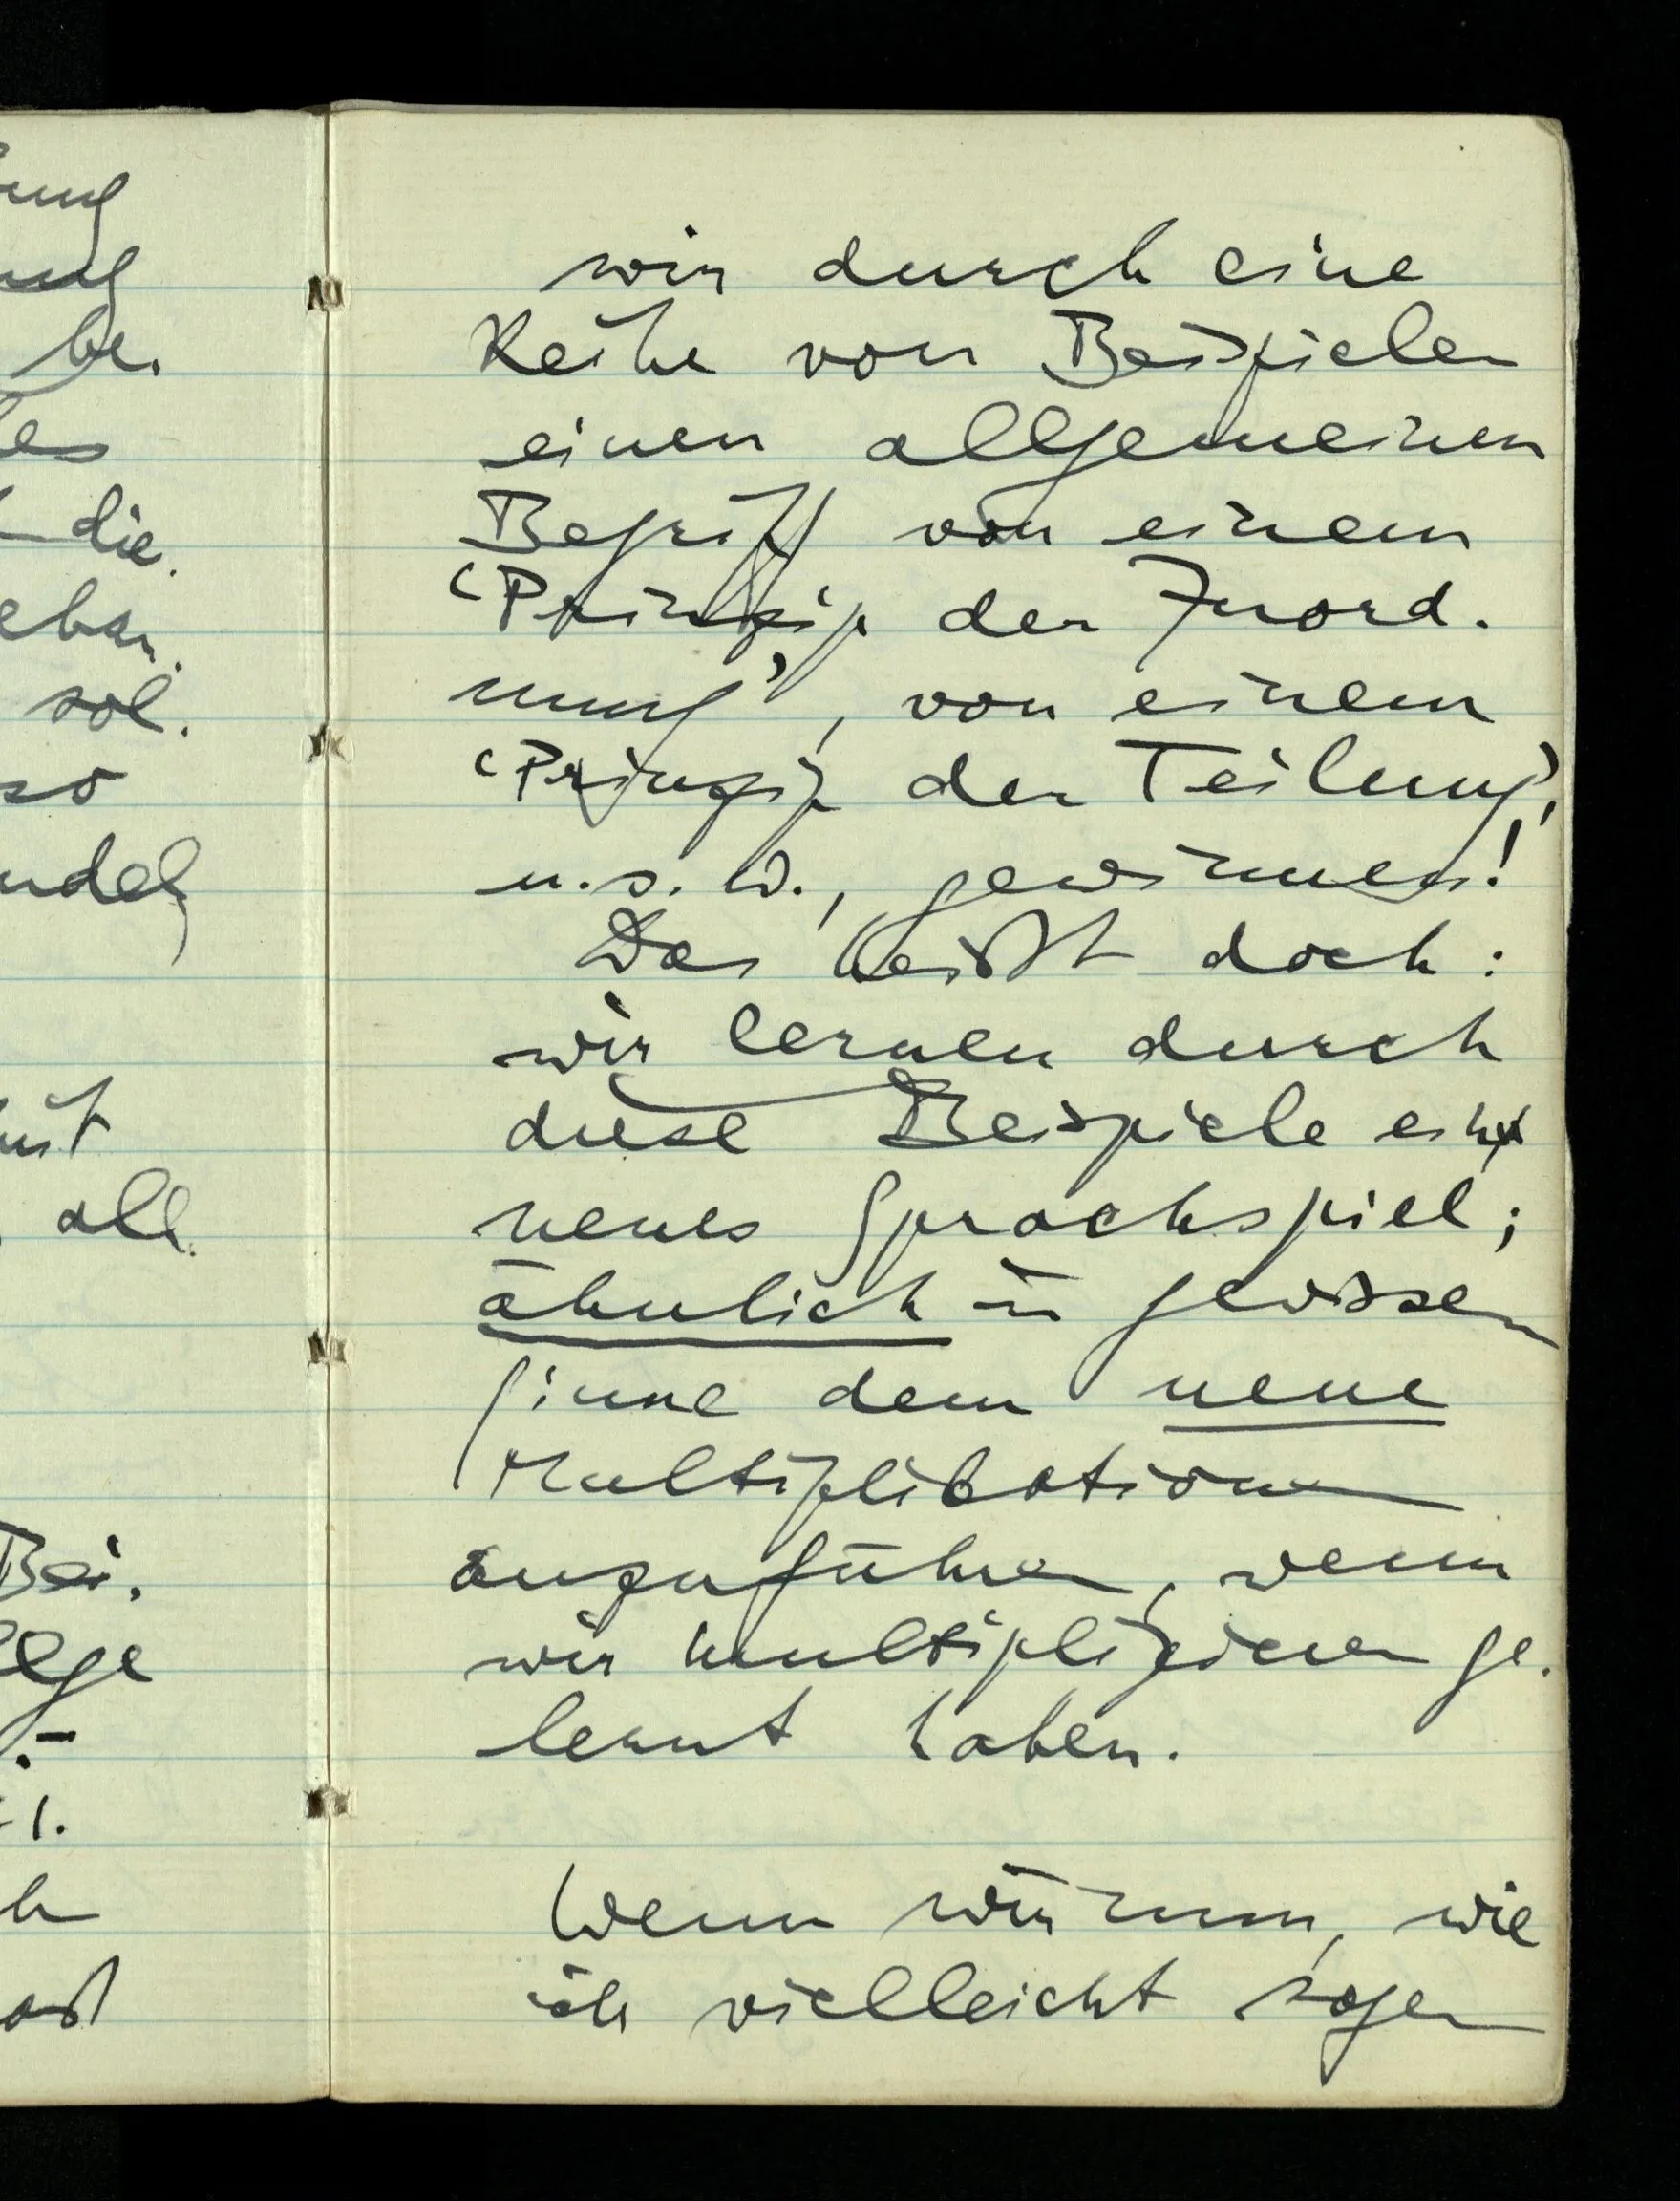 ung
ung
be.
les
die.
ebar.
sol.
so
ndelt
mit
all.
Bei.
lge
.–
1.
h
ast
wir durch eine
Reihe von Beispielen
einen allgemeinen
Begriff von einem
‘Prinzip der Zuord.
nung’, von einem
‘Prinzip der Teilung’,
u.s.w., gewinnen!
Das heißt doch:
wir lernen durch
diese Beispiele ein
neues Sprachspiel;
ähnlich in gewissen
Sinne dem neue
Multiplikationen
auszuführen, wenn
wir multiplizieren ge.
lernt haben.
Wenn wir nun, wie
ich vielleicht sagen